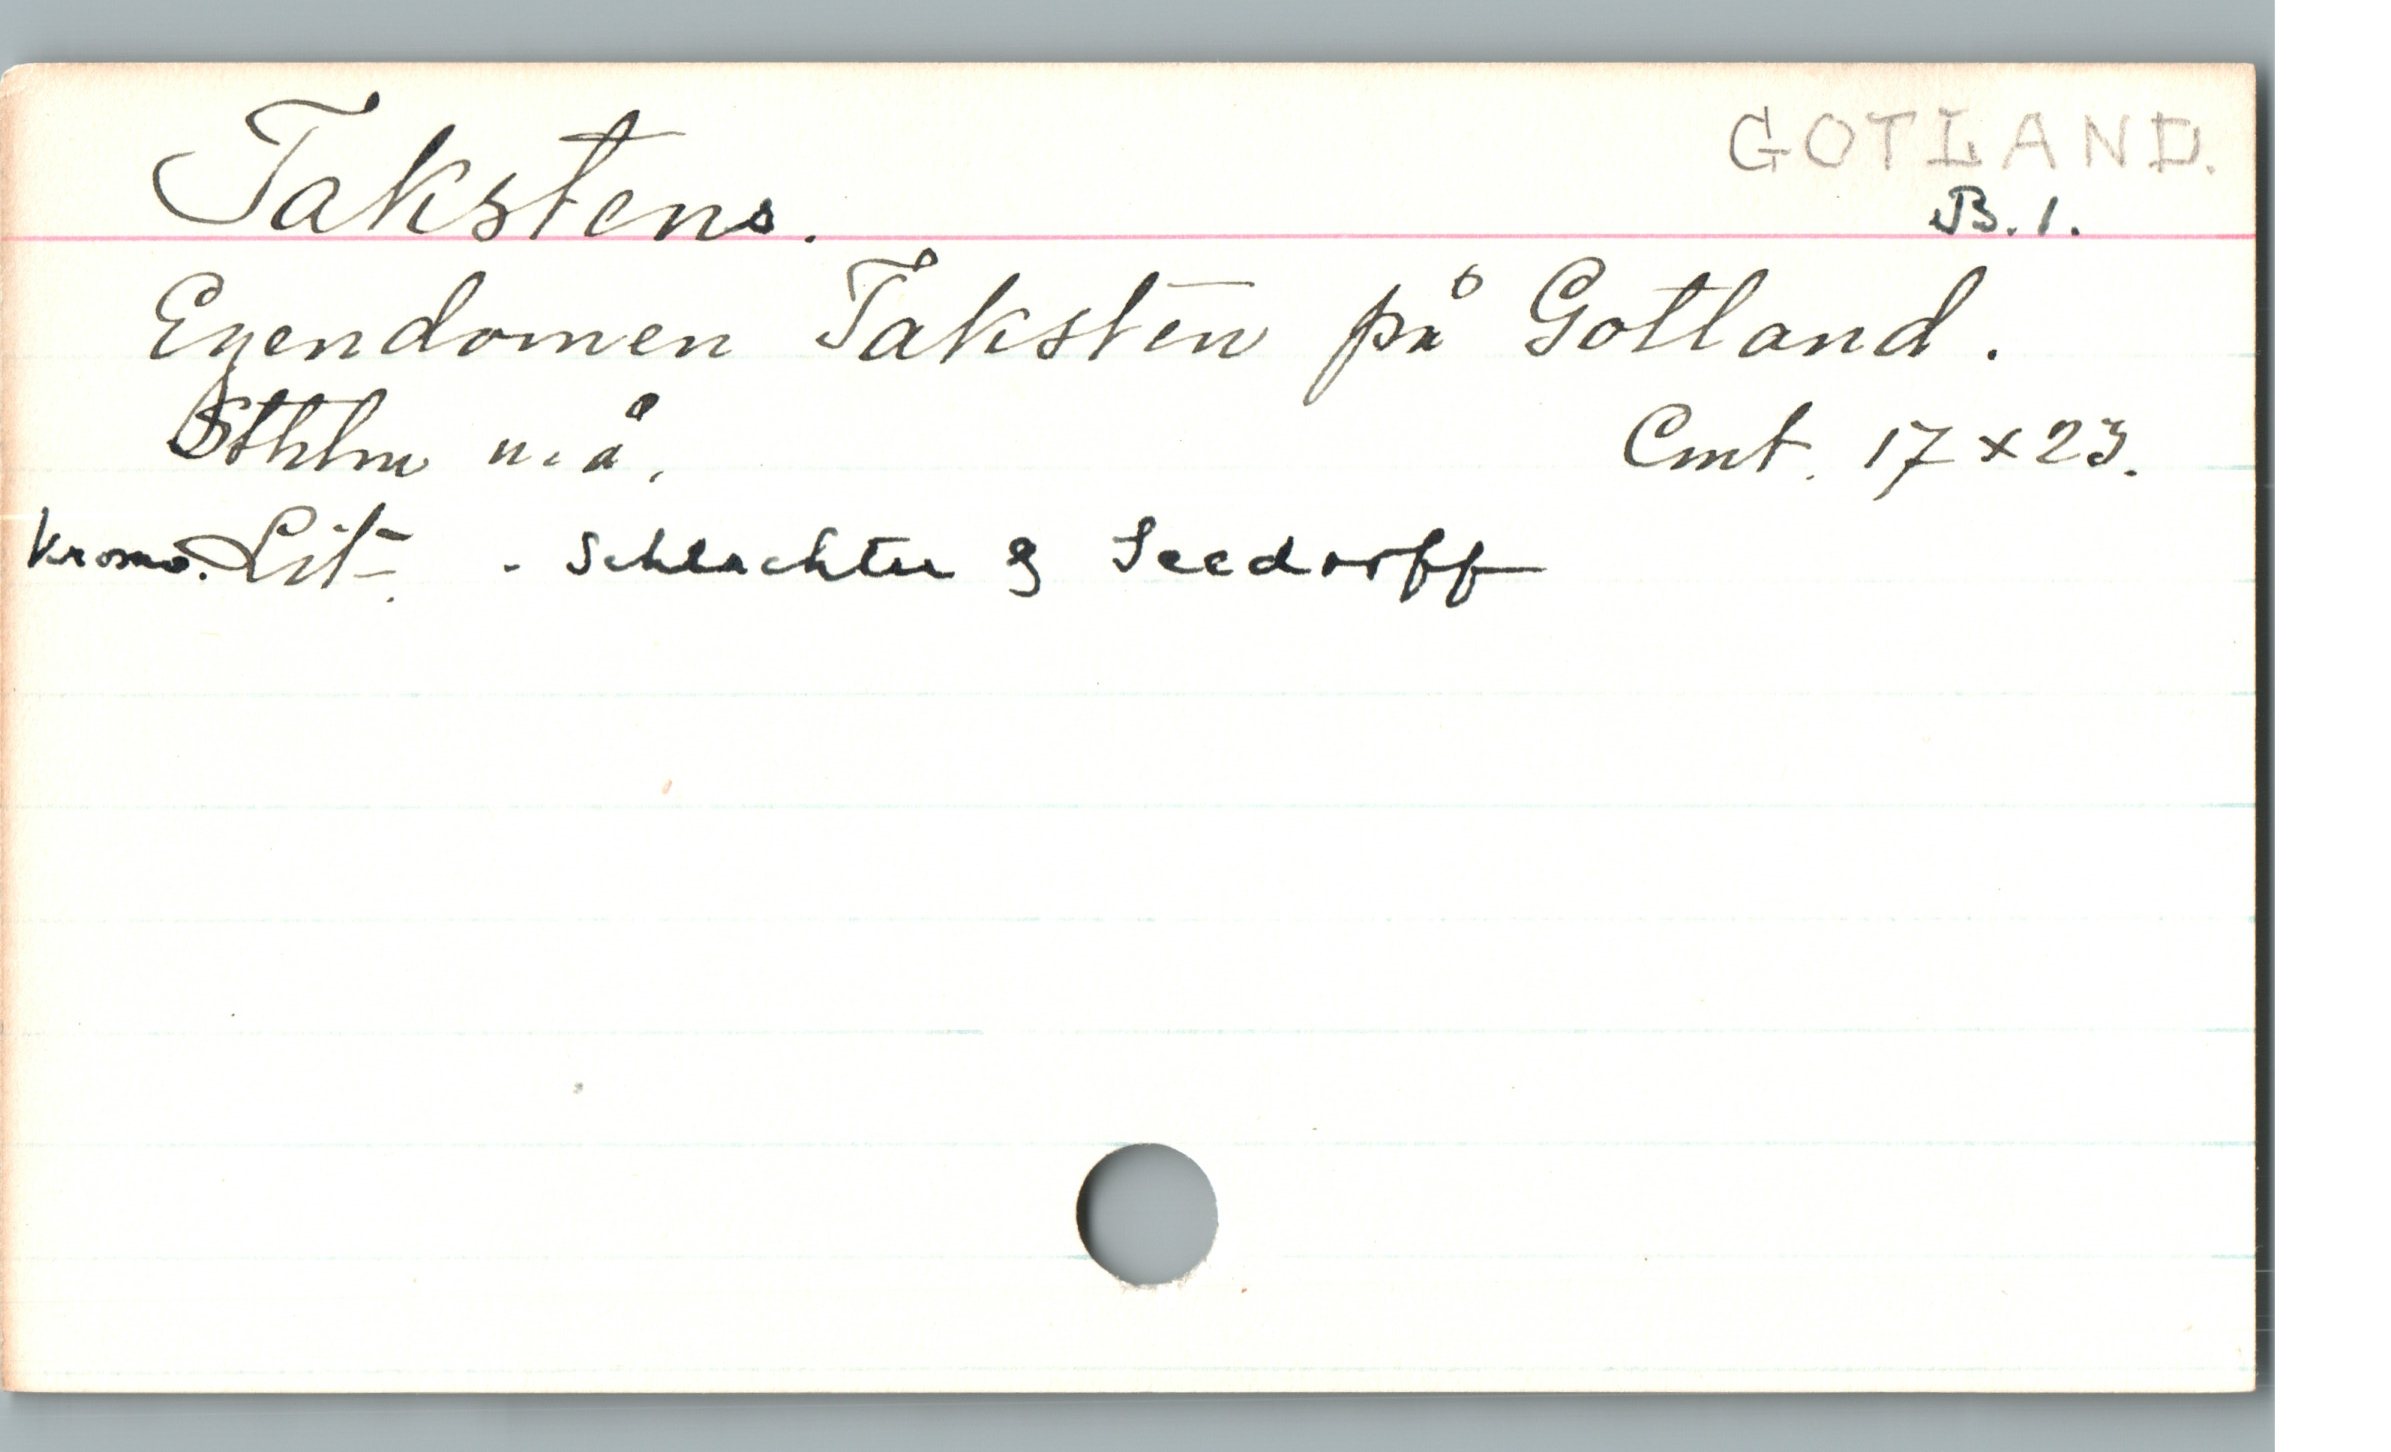 Takstens.
GOTLAND.
B. 1.
Egendomen Taksten på Gotland.
Sthlm u. å. Cmt. 17 x 23.
Kromo. Lit. - Schlachter & Seedorff